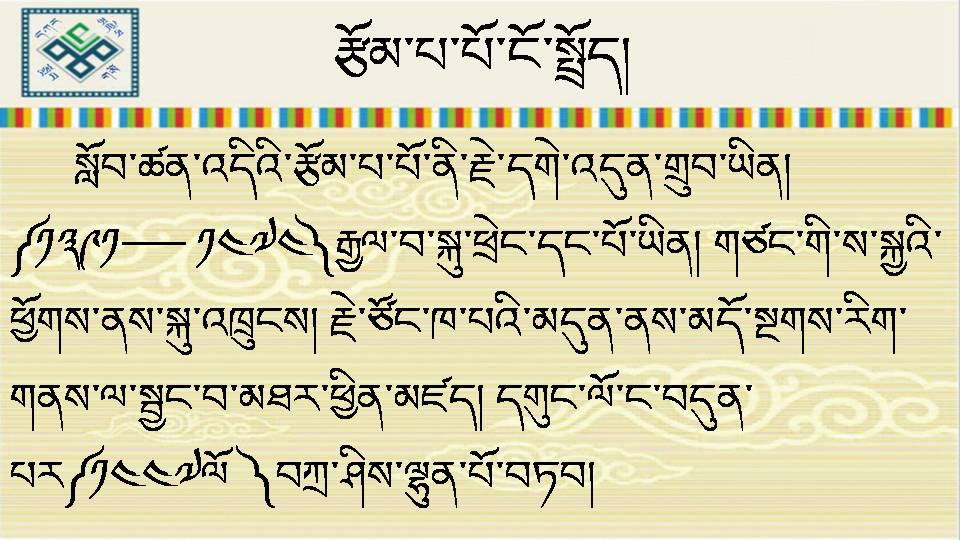 རྩོམ་པ་པོ་ངོ་སྤྲོད།
སློབ་ཚན་འདིའི་རྩོམ་པ་པོ་ནི་རྗེ་དགེ་འདུན་གྲུབ་ཡིན།
༼༡༣༩༡—— ༡༤༧༤༽རྒྱལ་བ་སྐུ་ཕྲེང་དང་པོ་ཡིན། གཙང་གི་ས་སྐྱའི་
ཕྱོགས་ནས་སྐུ་འཁྲུངས། རྗེ་ཙོང་ཁ་པའི་མདུན་ནས་མདོ་སྔགས་རིག་
གནས་ལ་སྦྱང་བ་མཐར་ཕྱིན་མཛད། དགུང་ལོ་ང་བདུན་
པར༼༡༤༤༧ལོ ༽བཀྲ་ཤིས་ལྷུན་པོ་བཏབ།